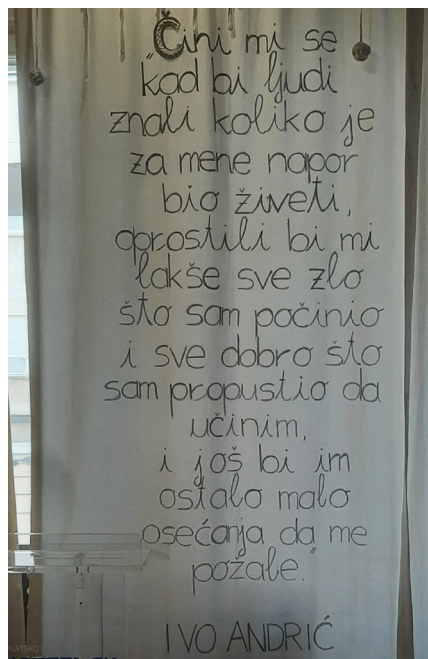 „Čini mi se
kad bi ljudi
znali koliko je
za mene napor
bio živeti,
oprostili bi mi
lakše sve zlo
što sam počinio
i sve dobro što
sam propustio da
učinim,
i još bi im
ostalo malo
osećanja da me
požale.”
IVO ANDRIĆ